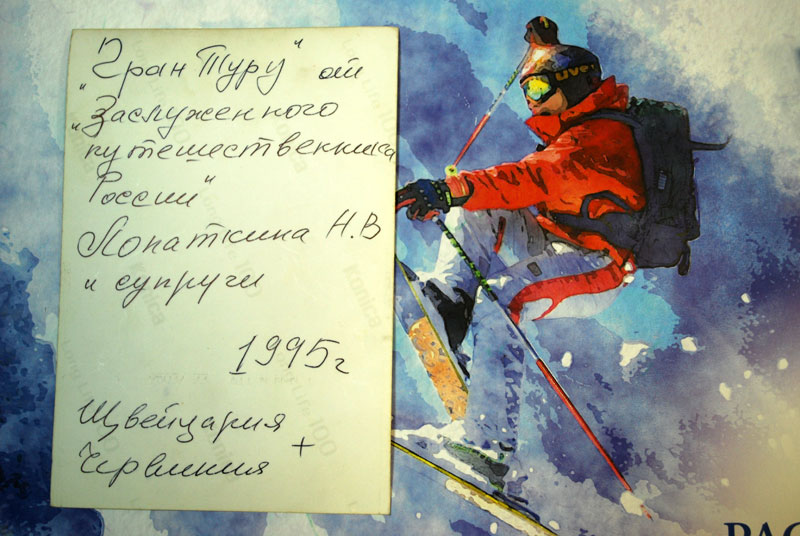 "Гран Туру" от
"Заслуженного
"путешественника
России"
Лопаткина Н.В
и супруги
1995г
Щвейцария
+
Червиния
uve
РАС